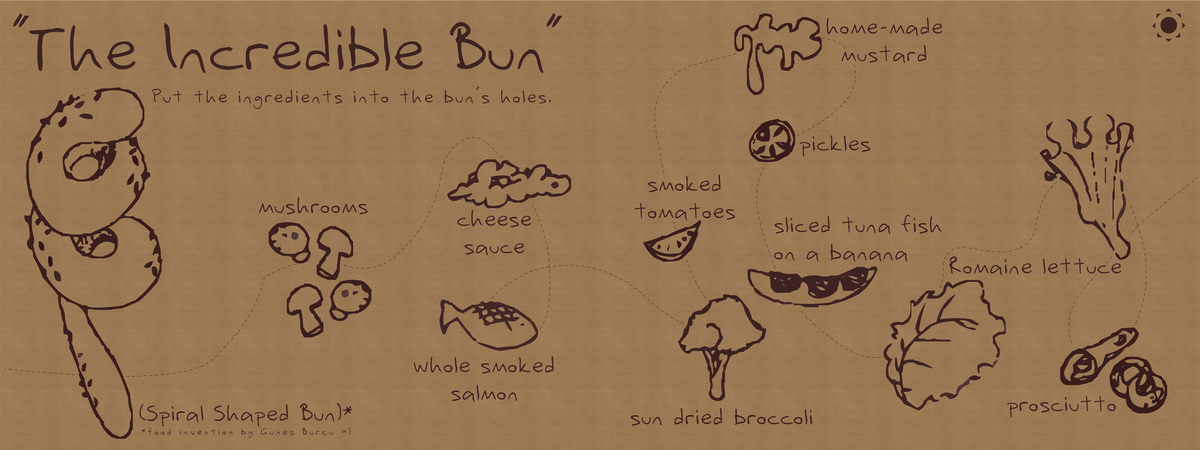 "The Incredible Bun"
Put the ingredients into the bun's holes.
home-made
mustard
pickles
smoked
tomatoes
mushrooms
cheese
sauce
sliced tuna fish
on a banana
Romaine lettuce
whole smoked
salmon
sun dried broccoli
prosciutto
(Spiral Shaped Bun)*
*food invention by Gunes Burcu =)